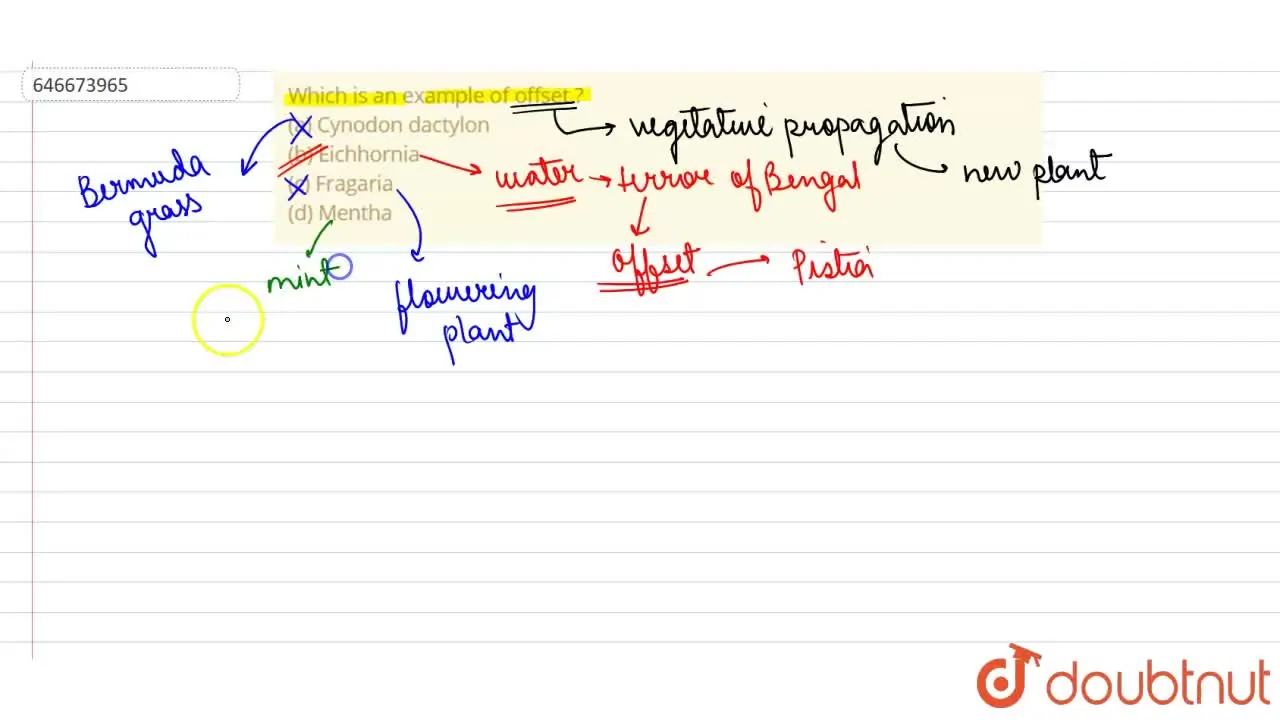 646673965
Which is an example of offset ?
(a) Cynodon dactylon
(b) Eichhornia
(c) Fragaria
(d) Mentha
vegitative propagation
new plant
water → terror of Bengal
offset
Pistia
Bermuda
grass
mint
flowering
plant
doubtnut